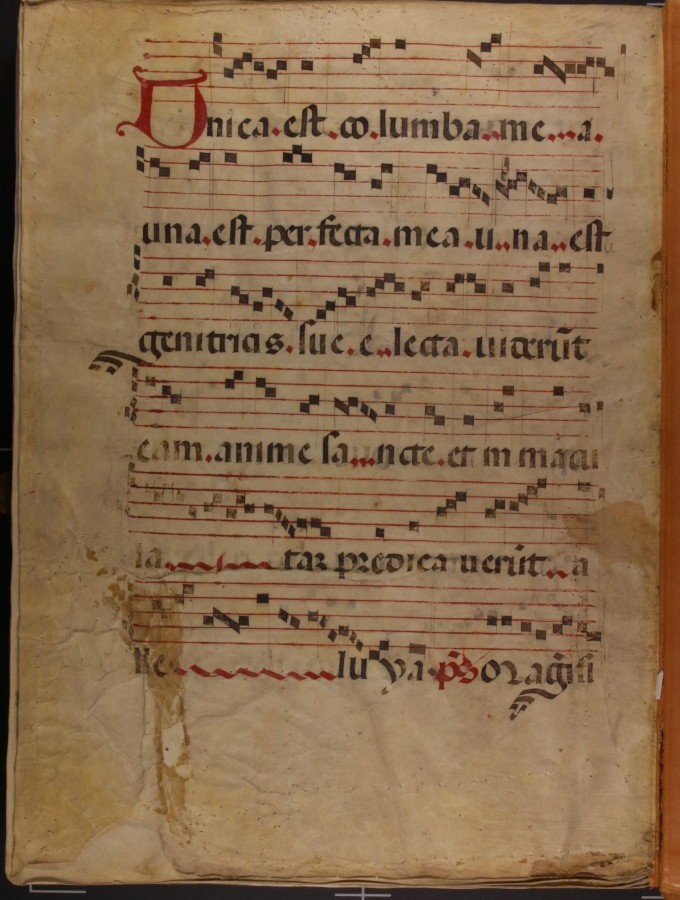 Unica.est.co.lumba..me...a.
una.est.perfecta.mea.u..na..est
genitricis.sue.e..lecta.uiderūt
eam.anime sa...ncte.et in macu
la tar predica uerūt..a
lle lu ya.